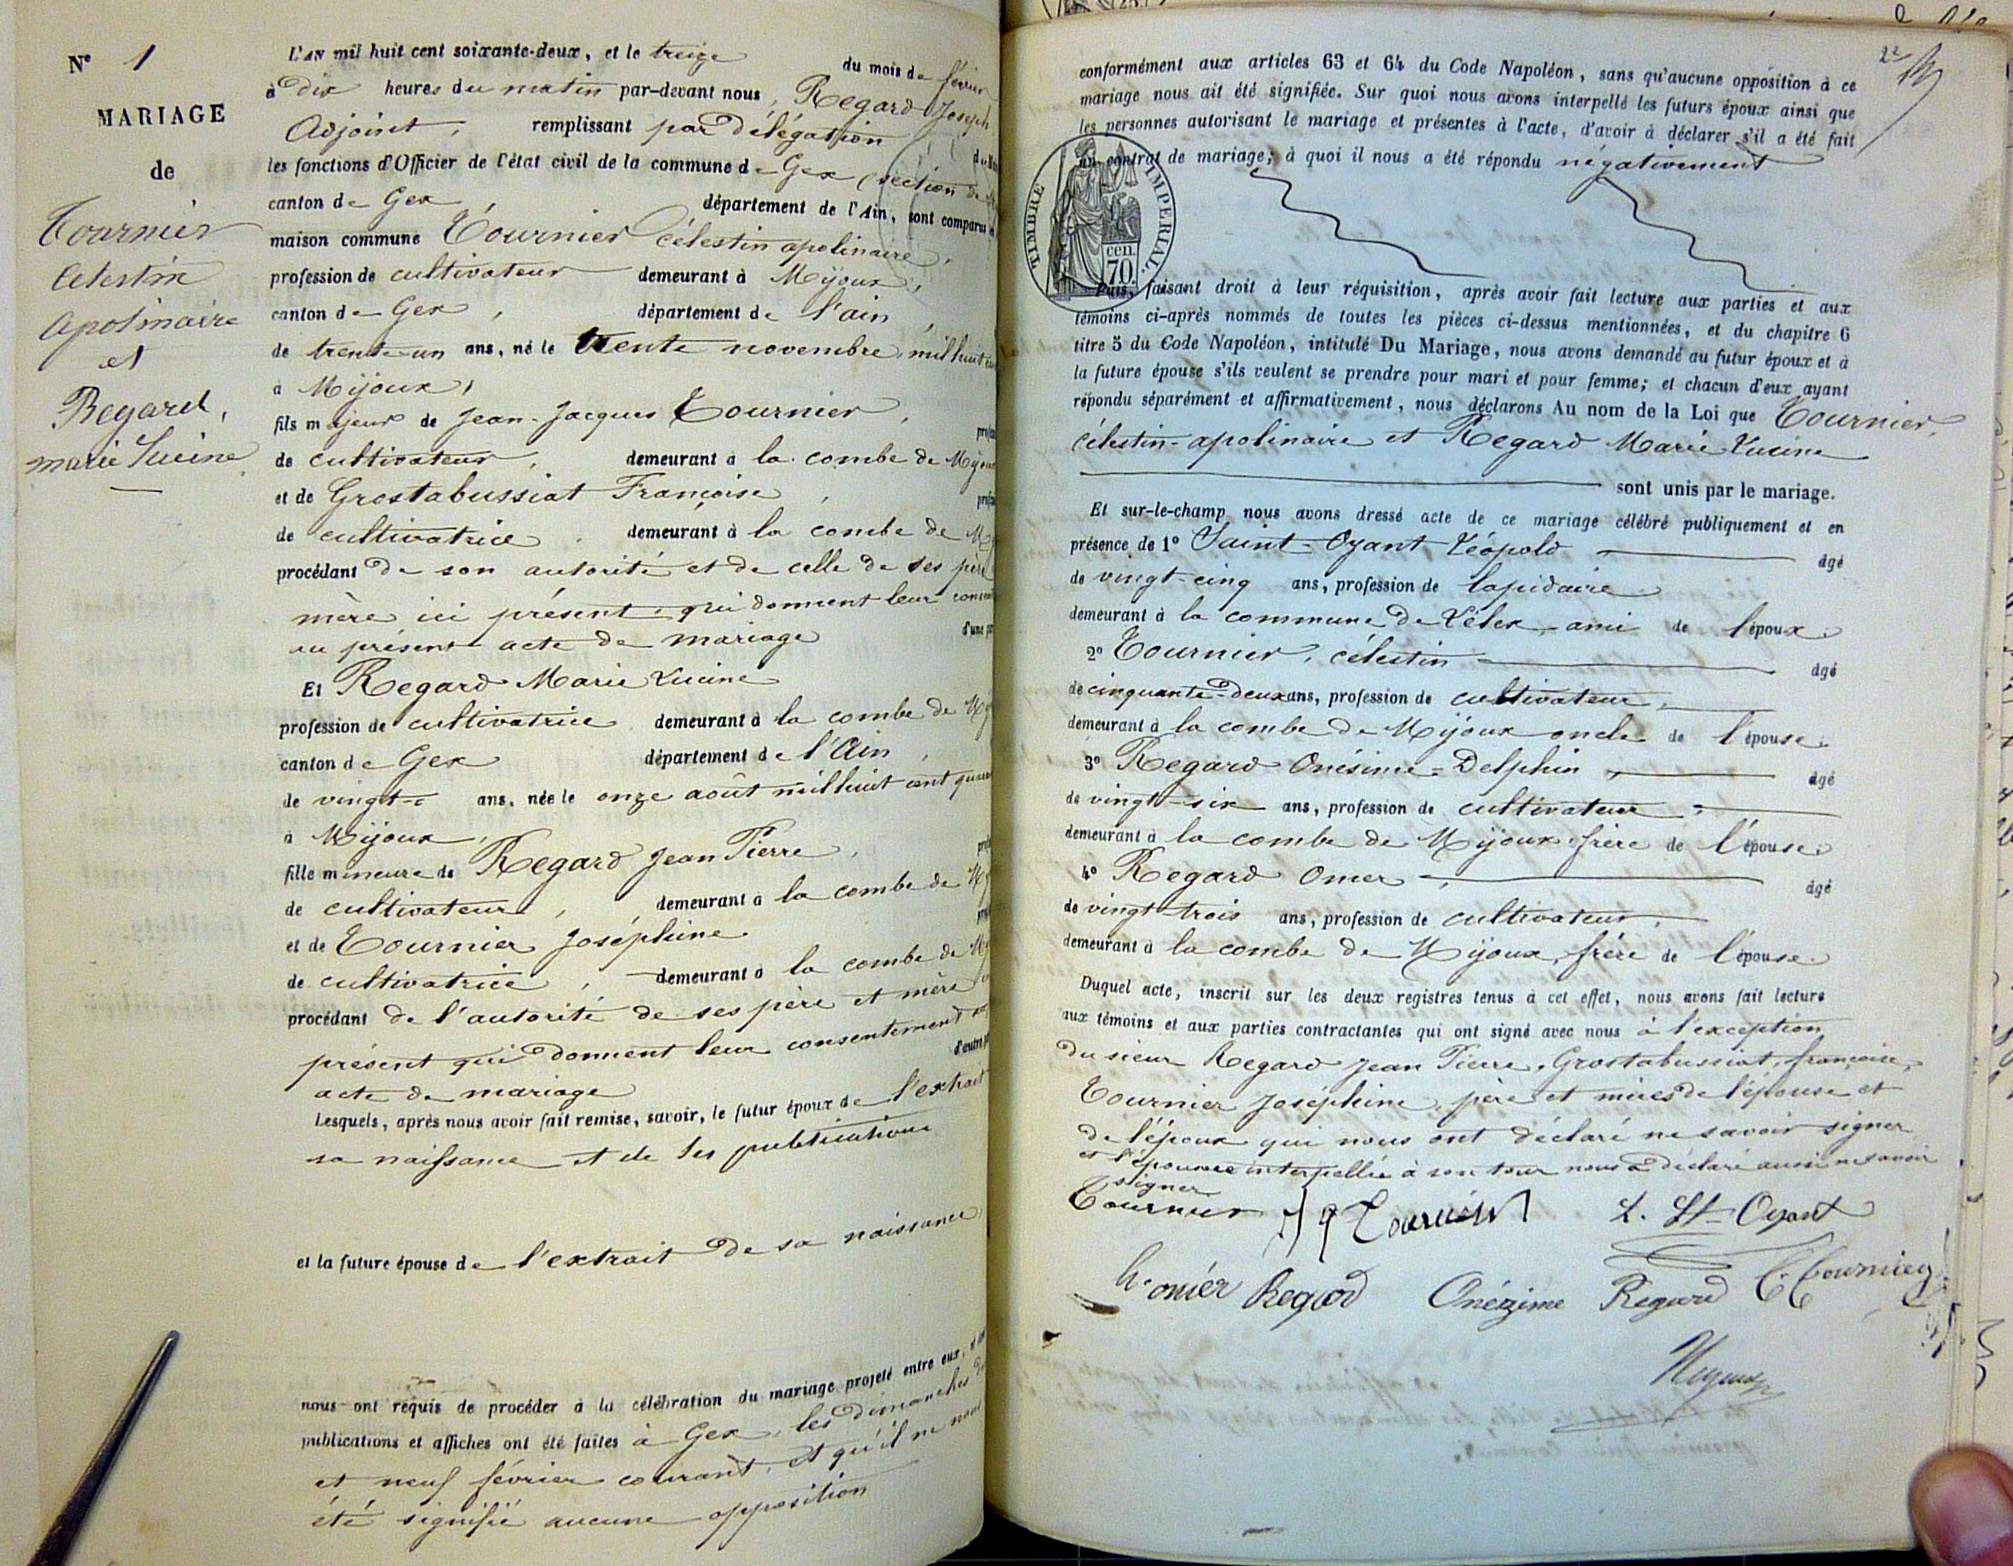 N° 1
MARIAGE
de
Tournier
Celestin
apolinaire
et
Regard,
marie Lucine
L'AN mil huit cent soixante-deux, et le treize du mois de février
à dix heures du matin par-devant nous, Regard Joseph
Adjoint, remplissant par délégation
les fonctions d'Officier de l'état civil de la commune de Gex (section de
canton de Gex département de l'Ain, sont comparus
maison commune Tournier célestin apolinaire,
profession de cultivateur demeurant à Mijoux,
canton de Gex, département de l'ain,
de trente-un ans, né le trente novembre mil huit
à Mijoux,
fils majeur de Jean-Jacques Tournier,
de cultivateur, demeurant à la combe de Mijoux
et de Grostabussiat Françoise,
de cultivatrice demeurant à la combe de
procédant de son autorité et de celle de ses père
mère ici présent, qui donnent leur
au présent acte de mariage
Et Regard Marie Lucine
profession de cultivatrice demeurant à la combe de
canton de Gex département de l'Ain,
de vingt- ans, née le onze août mil huit cent
à Mijoux,
fille mineure de Regard Jean Pierre,
de cultivateur, demeurant à la combe de
et de Tournier Joséphine
de cultivatrice, demeurant à la combe de
procédant de l'autorité de ses père et mère
présent qui donnent leur consentement
acte de mariage
Lesquels, après nous avoir fait remise, savoir, le futur époux de l'extrait
sa naissance et de les publications
et la future épouse de l'extrait de sa naissance
nous ont requis de procéder à la célébration du mariage projeté entre eux,
publications et affiches ont été faites à Gex, les dimanches
et neuf février courant, et qu'il ne nous
été signifié aucune opposition
conformément aux articles 63 et 64 du Code Napoléon, sans qu'aucune opposition à ce
mariage nous ait été signifiée. Sur quoi nous avons interpellé les futurs époux ainsi que
les personnes autorisant le mariage et présentes à l'acte, d'avoir à déclarer s'il a été fait
un contrat de mariage; à quoi il nous a été répondu négativement
TIMBRE IMPERIAL.
cen.
70
Puis, faisant droit à leur réquisition, après avoir fait lecture aux parties et aux
témoins ci-après nommés de toutes les pièces ci-dessus mentionnées, et du chapitre 6
titre 5 du Code Napoléon, intitulé Du Mariage, nous avons demandé au futur époux et à
la future épouse s'ils veulent se prendre pour mari et pour femme; et chacun d'eux ayant
répondu séparément et affirmativement, nous déclarons Au nom de la Loi que Tournier,
célestin-apolinaire et Regard Marie Lucine
sont unis par le mariage.
Et sur-le-champ nous avons dressé acte de ce mariage célébré publiquement et en
présence de 1° Saint-Oyant Léopold âgé
de vingt-cinq ans, profession de lapidaire
demeurant à la commune de Lélex, ami de l'époux.
2° Tournier, célestin âgé
de cinquante-deux ans, profession de cultivateur,
demeurant à la combe de Mijoux oncle de l'épouse.
3° Regard Onésime-Delphin, âgé
de vingt-six ans, profession de cultivateur
demeurant à la combe de Mijoux frère de l'épouse
4° Regard Omer, âgé
de vingt-trois ans, profession de cultivateur,
demeurant à la combe de Mijoux, frère de l'épouse.
Duquel acte, inscrit sur les deux registres tenus à cet effet, nous avons fait lecture
aux témoins et aux parties contractantes qui ont signé avec nous à l'exception
du sieur Regard Jean Pierre, Grostabussiat, françoise,
Tournier Joséphine, père et mères de l'épouse et
de l'époux qui nous ont déclaré ne savoir signer
et l'épouse interpellée à son tour nous a déclaré aussi ne savoir
signer
Tournier JJ Tournier L. St-Oyant
omér Regard Onézime Regard C. Tournier